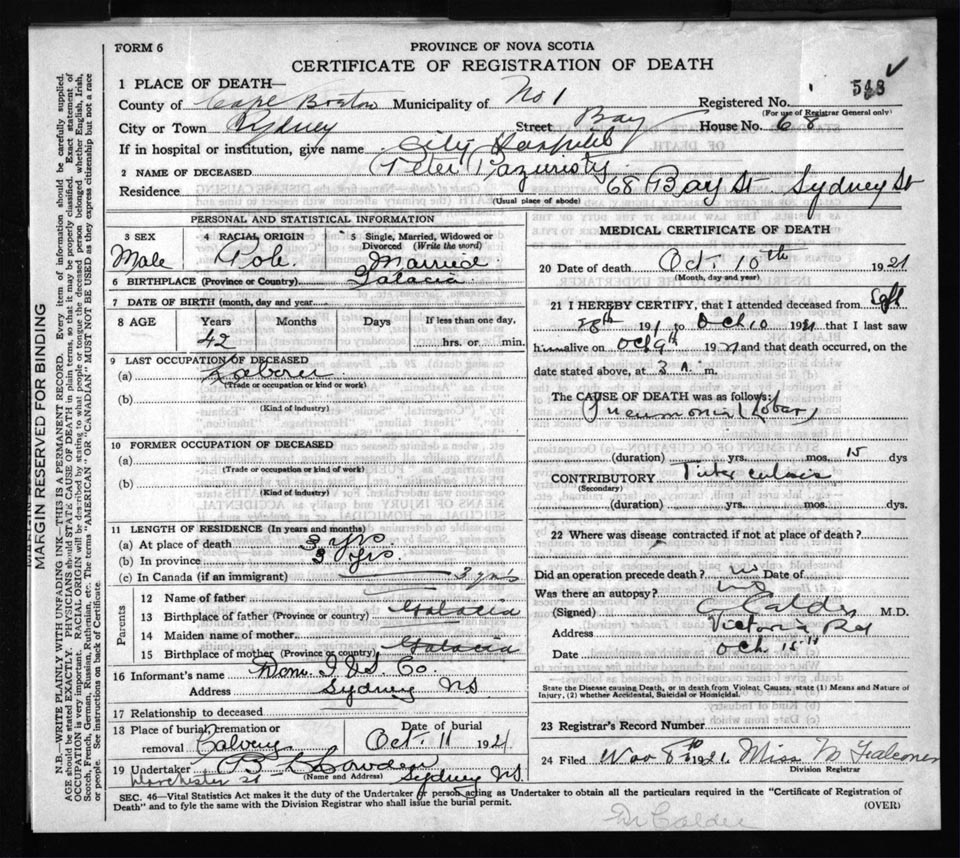 FORM 6
PROVINCE OF NOVA SCOTIA
CERTIFICATE OF REGISTRATION OF DEATH
1 PLACE OF DEATH—
County of Cape Breton Municipality of No 1 Registered No. 548
(For use of Registrar General only)
City or Town Sydney Street Bay House No. 68
If in hospital or institution, give name City Hospital
2 NAME OF DECEASED (Peter Pazuristy
Residence 68 Bay St Sydney St
(Usual place of abode)
PERSONAL AND STATISTICAL INFORMATION
3 SEX Male
4 RACIAL ORIGIN Pole
5 Single, Married, Widowed or Divorced (Write the word) Married
6 BIRTHPLACE (Province or Country) Galacia
7 DATE OF BIRTH (month, day and year)
8 AGE Years Months Days If less than one day,
42 hrs. or min.
9 LAST OCCUPATION OF DECEASED
(a) Laborer
(Trade or occupation or kind or work)
(b)
(Kind of industry)
10 FORMER OCCUPATION OF DECEASED
(a)
(Trade or occupation or kind of work)
(b)
(Kind of industry)
11 LENGTH OF RESIDENCE (In years and months)
(a) At place of death 3 yrs
(b) In province 3 yrs
(c) In Canada (if an immigrant) 3 yrs
Parents
12 Name of father
13 Birthplace of father (Province or country) Galacia
14 Maiden name of mother
15 Birthplace of mother (Province or country) Galacia
16 Informant's name Dom. I & S Co.
Address Sydney NS
17 Relationship to deceased
13 Place of burial, cremation or removal Calvery
Date of burial Oct. 11 1921
19 Undertaker
(Name and Address) Sydney NS
MEDICAL CERTIFICATE OF DEATH
20 Date of death Oct. 10th 1921
(Month, day and year)
21 I HEREBY CERTIFY, that I attended deceased from Sept
28th 191 to Oct 10 1921 that I last saw
him alive on Oct 9th 1921 and that death occurred, on the
date stated above, at 3 A. m.
The CAUSE OF DEATH was as follows:
Pneumonia (Lobar)
(duration) yrs. mos. 15 dys
CONTRIBUTORY Tuberculosis
(Secondary)
(duration) yrs. mos. dys.
22 Where was disease contracted if not at place of death?
Did an operation precede death? no Date of
Was there an autopsy? no
(Signed) C Calder M.D.
Address Victoria Rd
Date Oct 15
State the Disease causing Death, or in death from Violent Causes, state (1) Means and Nature of Injury, (2) whether Accidental, Suicidal or Homicidal.
23 Registrar's Record Number
24 Filed Nov 8th 1921. Miss M Falconer
Division Registrar
SEC. 46—Vital Statistics Act makes it the duty of the Undertaker or person acting as Undertaker to obtain all the particulars required in the "Certificate of Registration of
Death" and to fyle the same with the Division Registrar who shall issue the burial permit.
(OVER)
Dr Calder
MARGIN RESERVED FOR BINDING
N.B.—WRITE PLAINLY WITH UNFADING INK—THIS IS A PERMANENT RECORD. Every item of information should be carefully supplied.
AGE should be stated EXACTLY. PHYSICIANS should STATE CAUSE OF DEATH in plain terms, so that it may be properly classified. Exact statement of
OCCUPATION is very important. RACIAL ORIGIN will be described by stating to what people or tongue the deceased person belonged whether English, Irish,
Scotch, French, German, Russian, Ruthenian, etc. The terms "AMERICAN" OR "CANADIAN" MUST NOT BE USED as they express citizenship but not a race
or people. See instructions on back of Certificate.